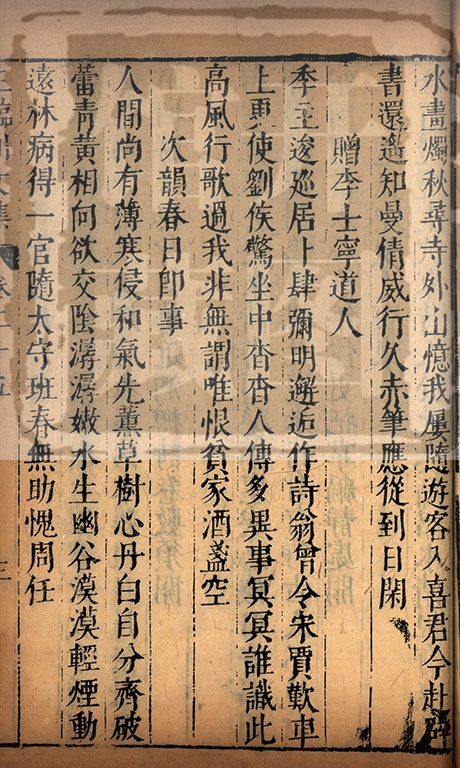 水畫燭秋尋寺外山憶我屢隨遊客入喜君今赴辟
書還遙知曼倩威行久赤筆應從到日閑
贈李士寧道人
季主逡巡居卜肆彌明邂逅作詩翁曾令宋賈歎車
上更使劉侯驚坐中杳杳人傳多異事冥冥誰識此
高風行歌過我非無謂唯恨貧家酒盞空
次韻春日即事
人間尚有薄寒侵和氣先薰草樹心丹白自分齊破
蕾青黃相向欲交陰潺潺嫩水生幽谷漠漠輕煙動
遠林病得一官隨太守班春無助愧周任